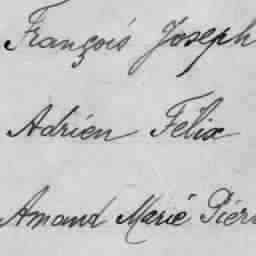 François Joseph
Adrien Félix
Amand Marié